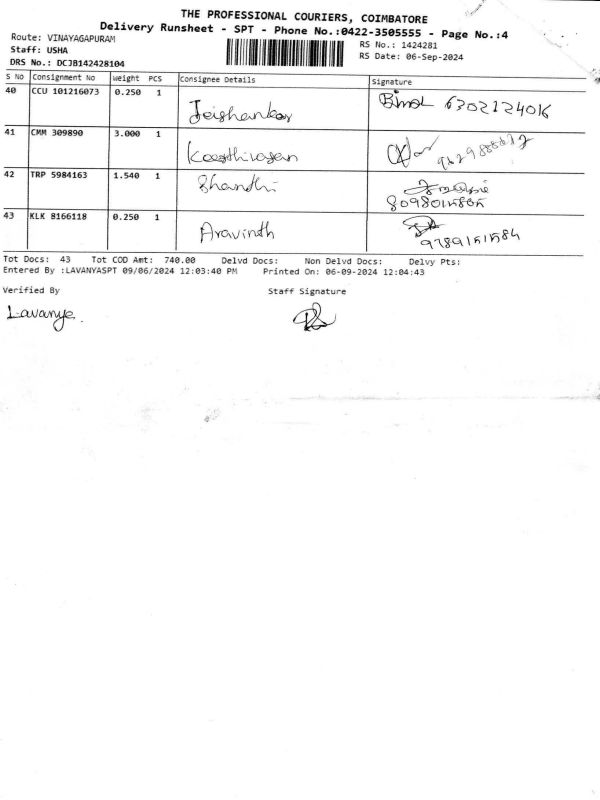 THE PROFESSIONAL COURIERS, COIMBATORE
Delivery Runsheet - SPT - Phone No.:0422-3505555 - Page No.:4
Route: VINAYAGAPURAM
RS No.: 1424281
Staff: USHA
RS Date: 06-Sep-2024
DRS No.: DCJB142428104
S No Consignment No Weight PCS Consignee Details Signature
40 CCU 101216073 0.250 1 Jeishankar Bimal 6302124016
41 CMM 309890 3.000 1 Keerthirajan
42 TRP 5984163 1.540 1 Shandhi
8098015805
43 KLK 8166118 0.250 1 Aravinth
9789151584
Tot Docs: 43 Tot COD Amt: 740.00 Delvd Docs: Non Delvd Docs: Delvy Pts:
Entered By :LAVANYASPT 09/06/2024 12:03:40 PM Printed On: 06-09-2024 12:04:43
Verified By Staff Signature
Lavanya